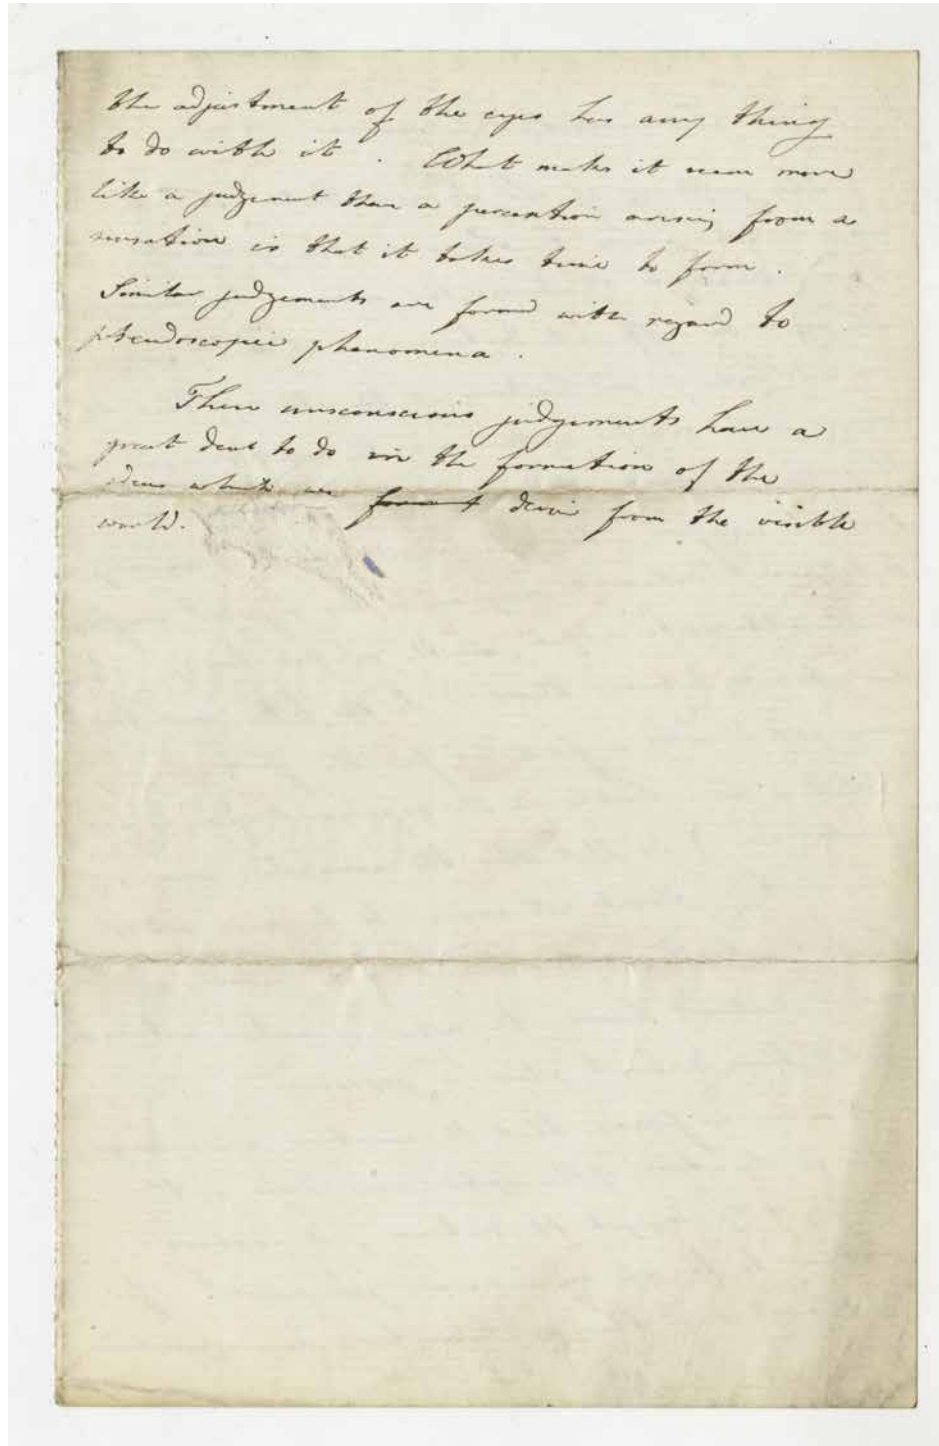 the adjustment of the eyes has any thing
to do with it. What makes it seem more
like a judgement than a perception arising from a
sensation is that it takes time to form.
Similar judgements are formed with regard to
pseudoscopic phenomena.
These unconscious judgements have a
great deal to do in the formation of the
ideas which we formed derive from the visible
world.